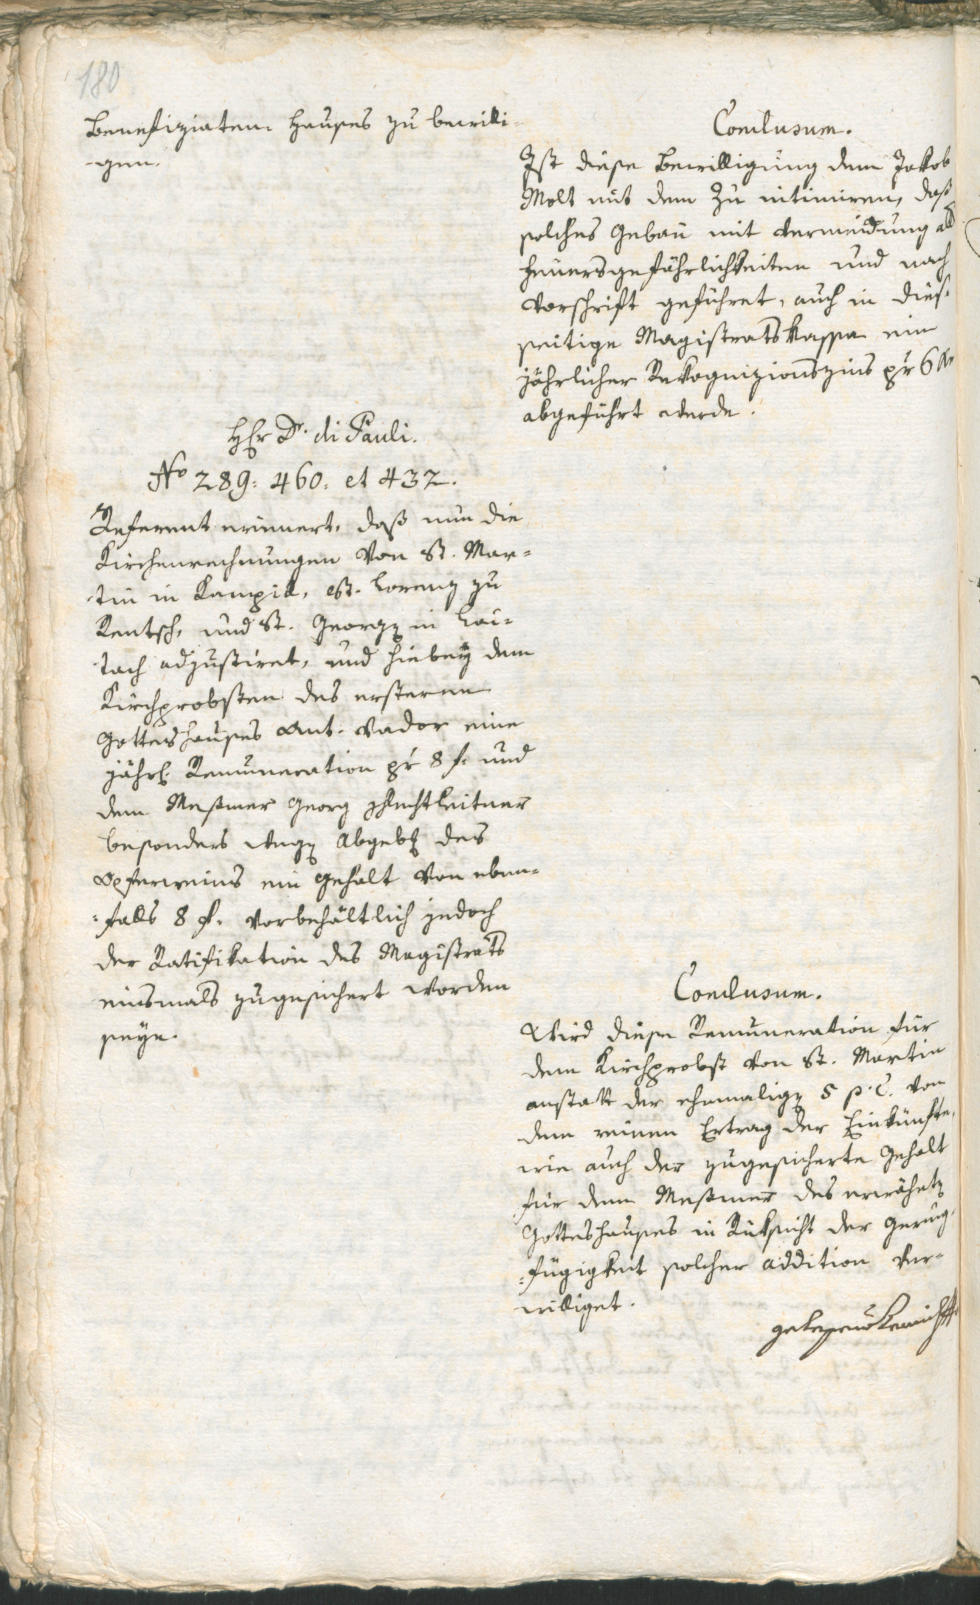 180
Benefiziaten Hauses zu bewilli-
-gen.
Conclusum.
Ist diese Bewilligung dem Jakob
Molt mit dem zu intimiren, daß
solches Gebäu mit Vermeidung all
Feuersgefährlichkeiten und nach
Vorschrift geführet, auch in dies-
seitige Magistratskassa ein
jährlicher Rekognizionszins pr 6 kr
abgeführt werde.
Hr Dr. di Pauli.
No 289. 460. et 432.
Referent erinnert, daß nun die
Kirchenrechnungen von St. Mar-
tin in Kampill, St. Lorenz zu
Rentsch, und St. Georg in Lei-
tach adjustiret, und hiebey dem
Kirchprobsten des ersteren
Gotteshauses Ant. Vador eine
jährl. Remuneration pr 8 f. und
dem Meßmer Georg
besonders wegen Abgeb des
Opferweins ein Gehalt von eben-
falls 8 f. vorbehältlich jedoch
der Ratifikation des Magistrats
einsmals zugesichert worden
seye.
Conclusum.
Wird diese Remuneration für
dem Kirchprobst von St. Martin
anstatt der ehemaligen 5 p. C. von
dem reinen Ertrag der Einkünfte,
wie auch der zugesicherte Gehalt
für dem Meßmer des erwähnten
Gotteshauses in Rüksicht der Gering-
fügigkeit solcher addition ver-
williget.